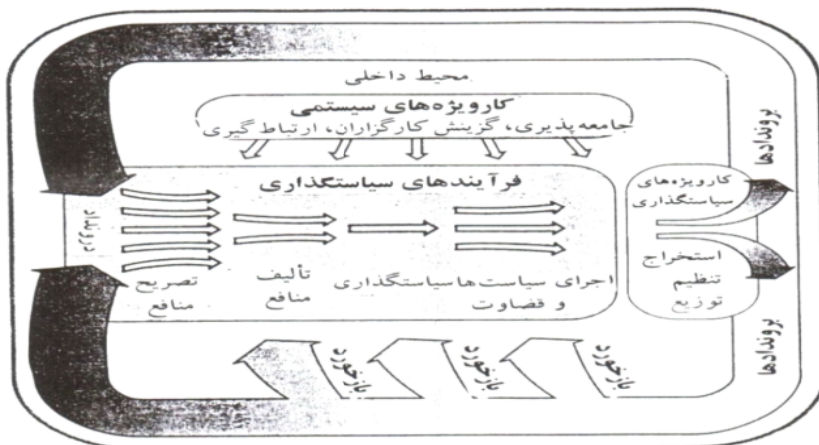 محیط داخلی
کارویژه‌های سیستمی
جامعه‌پذیری، گزینش کارگزاران، ارتباط گیری
فرآیندهای سیاستگذاری
درونداد
تصریح
منافع
تألیف
منافع
سیاستگذاری
اجرای سیاست‌ها
و قضاوت
کارویژه‌های
سیاستگذاری
استخراج
تنظیم
توزیع
بروندادها
بروندادها
بازخورد
بازخورد
بازخورد